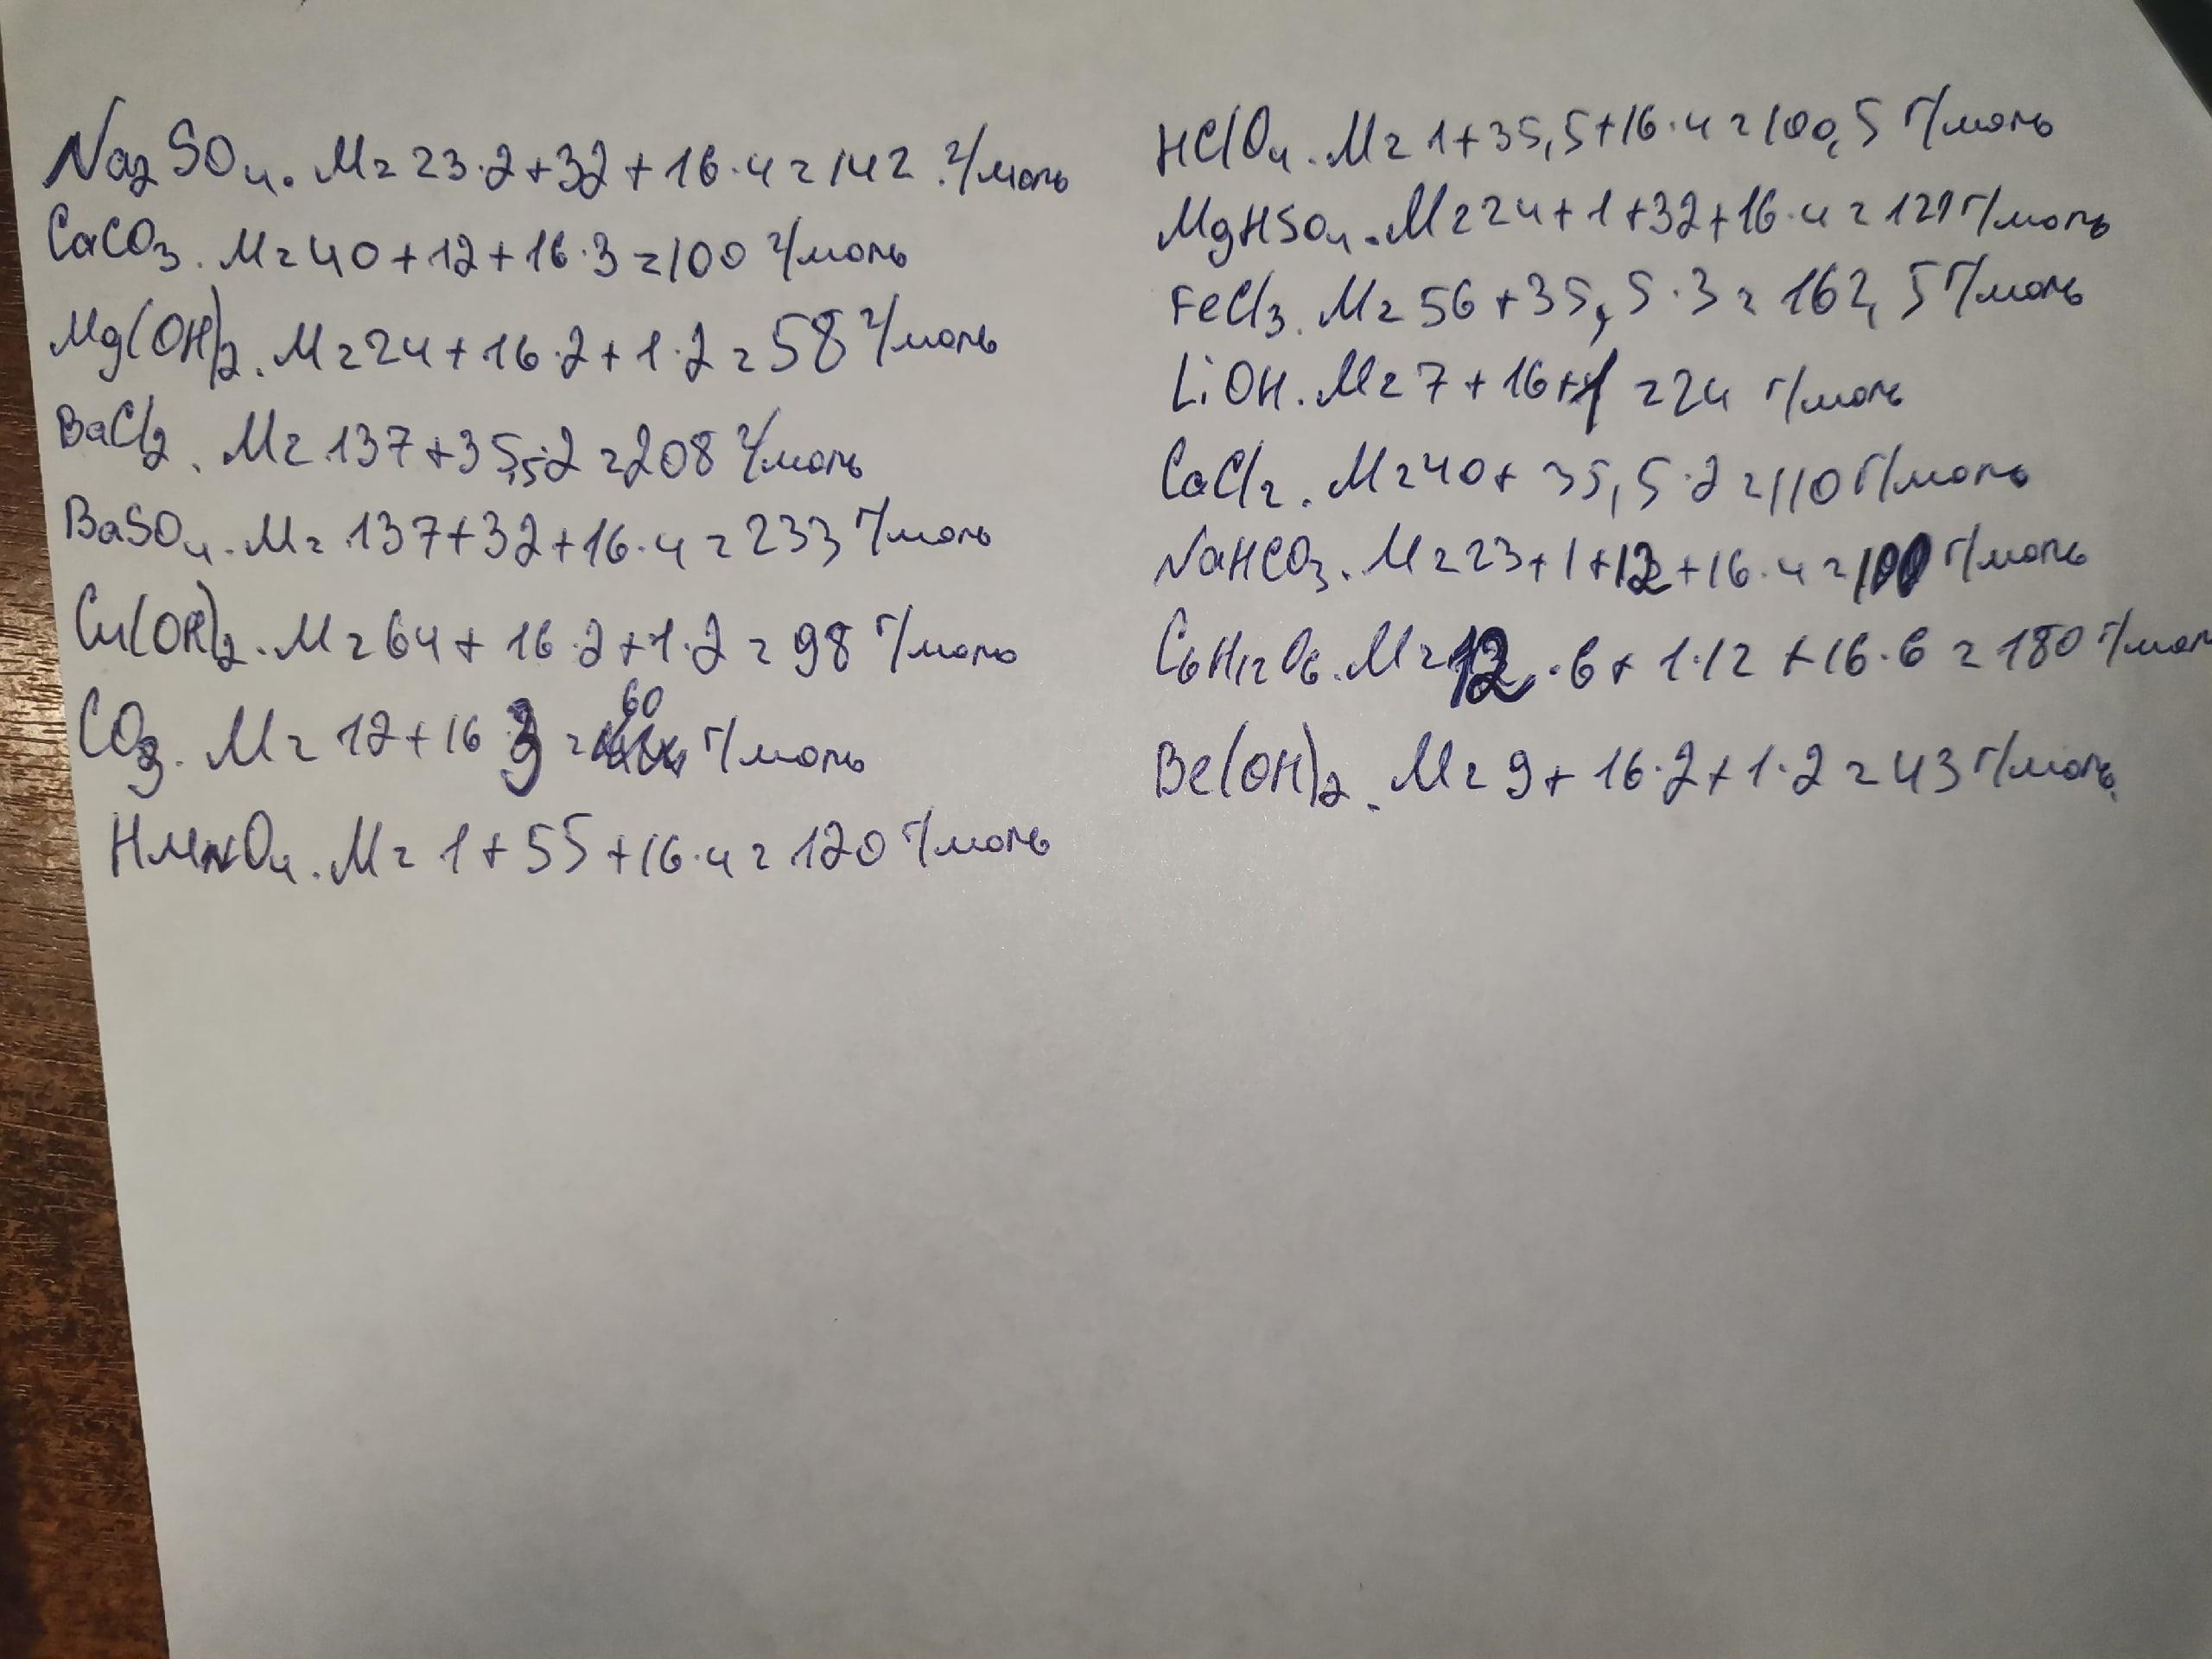 Na2SO4. M = 23·2+32+16·4 = 142 г/моль
CaCO3. M = 40+12+16·3 = 100 г/моль
Mg(OH)2. M = 24+16·2+1·2 = 58 г/моль
BaCl2. M = 137+35,5·2 = 208 г/моль
BaSO4. M = 137+32+16·4 = 233 г/моль
Cu(OH)2. M = 64+16·2+1·2 = 98 г/моль
CO3. M = 12+16 3 = 60 г/моль
HMnO4. M = 1+55+16·4 = 120 г/моль
HClO4. M = 1+35,5+16·4 = 100,5 г/моль
MgHSO4. M = 24+1+32+16·4 = 121 г/моль
FeCl3. M = 56+35,5·3 = 162,5 г/моль
LiOH. M = 7+16+1 = 24 г/моль
CaCl2. M = 40+35,5·2 = 110 г/моль
NaHCO3. M = 23+1+12+16·4 = 100 г/моль
C6H12O6. M = 12·6+1·12+16·6 = 180 г/моль
Be(OH)2. M = 9+16·2+1·2 = 43 г/моль